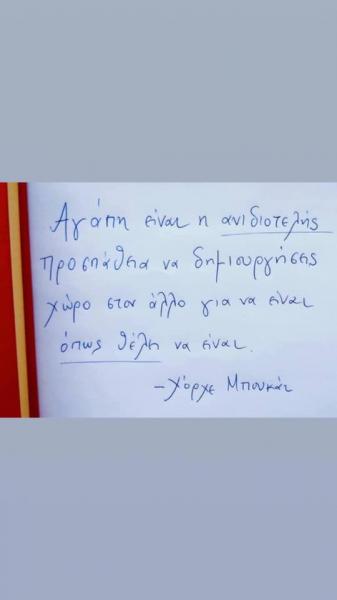 Αγάπη είναι η ανιδιοτελής
προσπάθεια να δημιουργήσεις
χώρο στον άλλο για να είναι
όπως θέλει να είναι.
- Χόρχε Μπουκάι